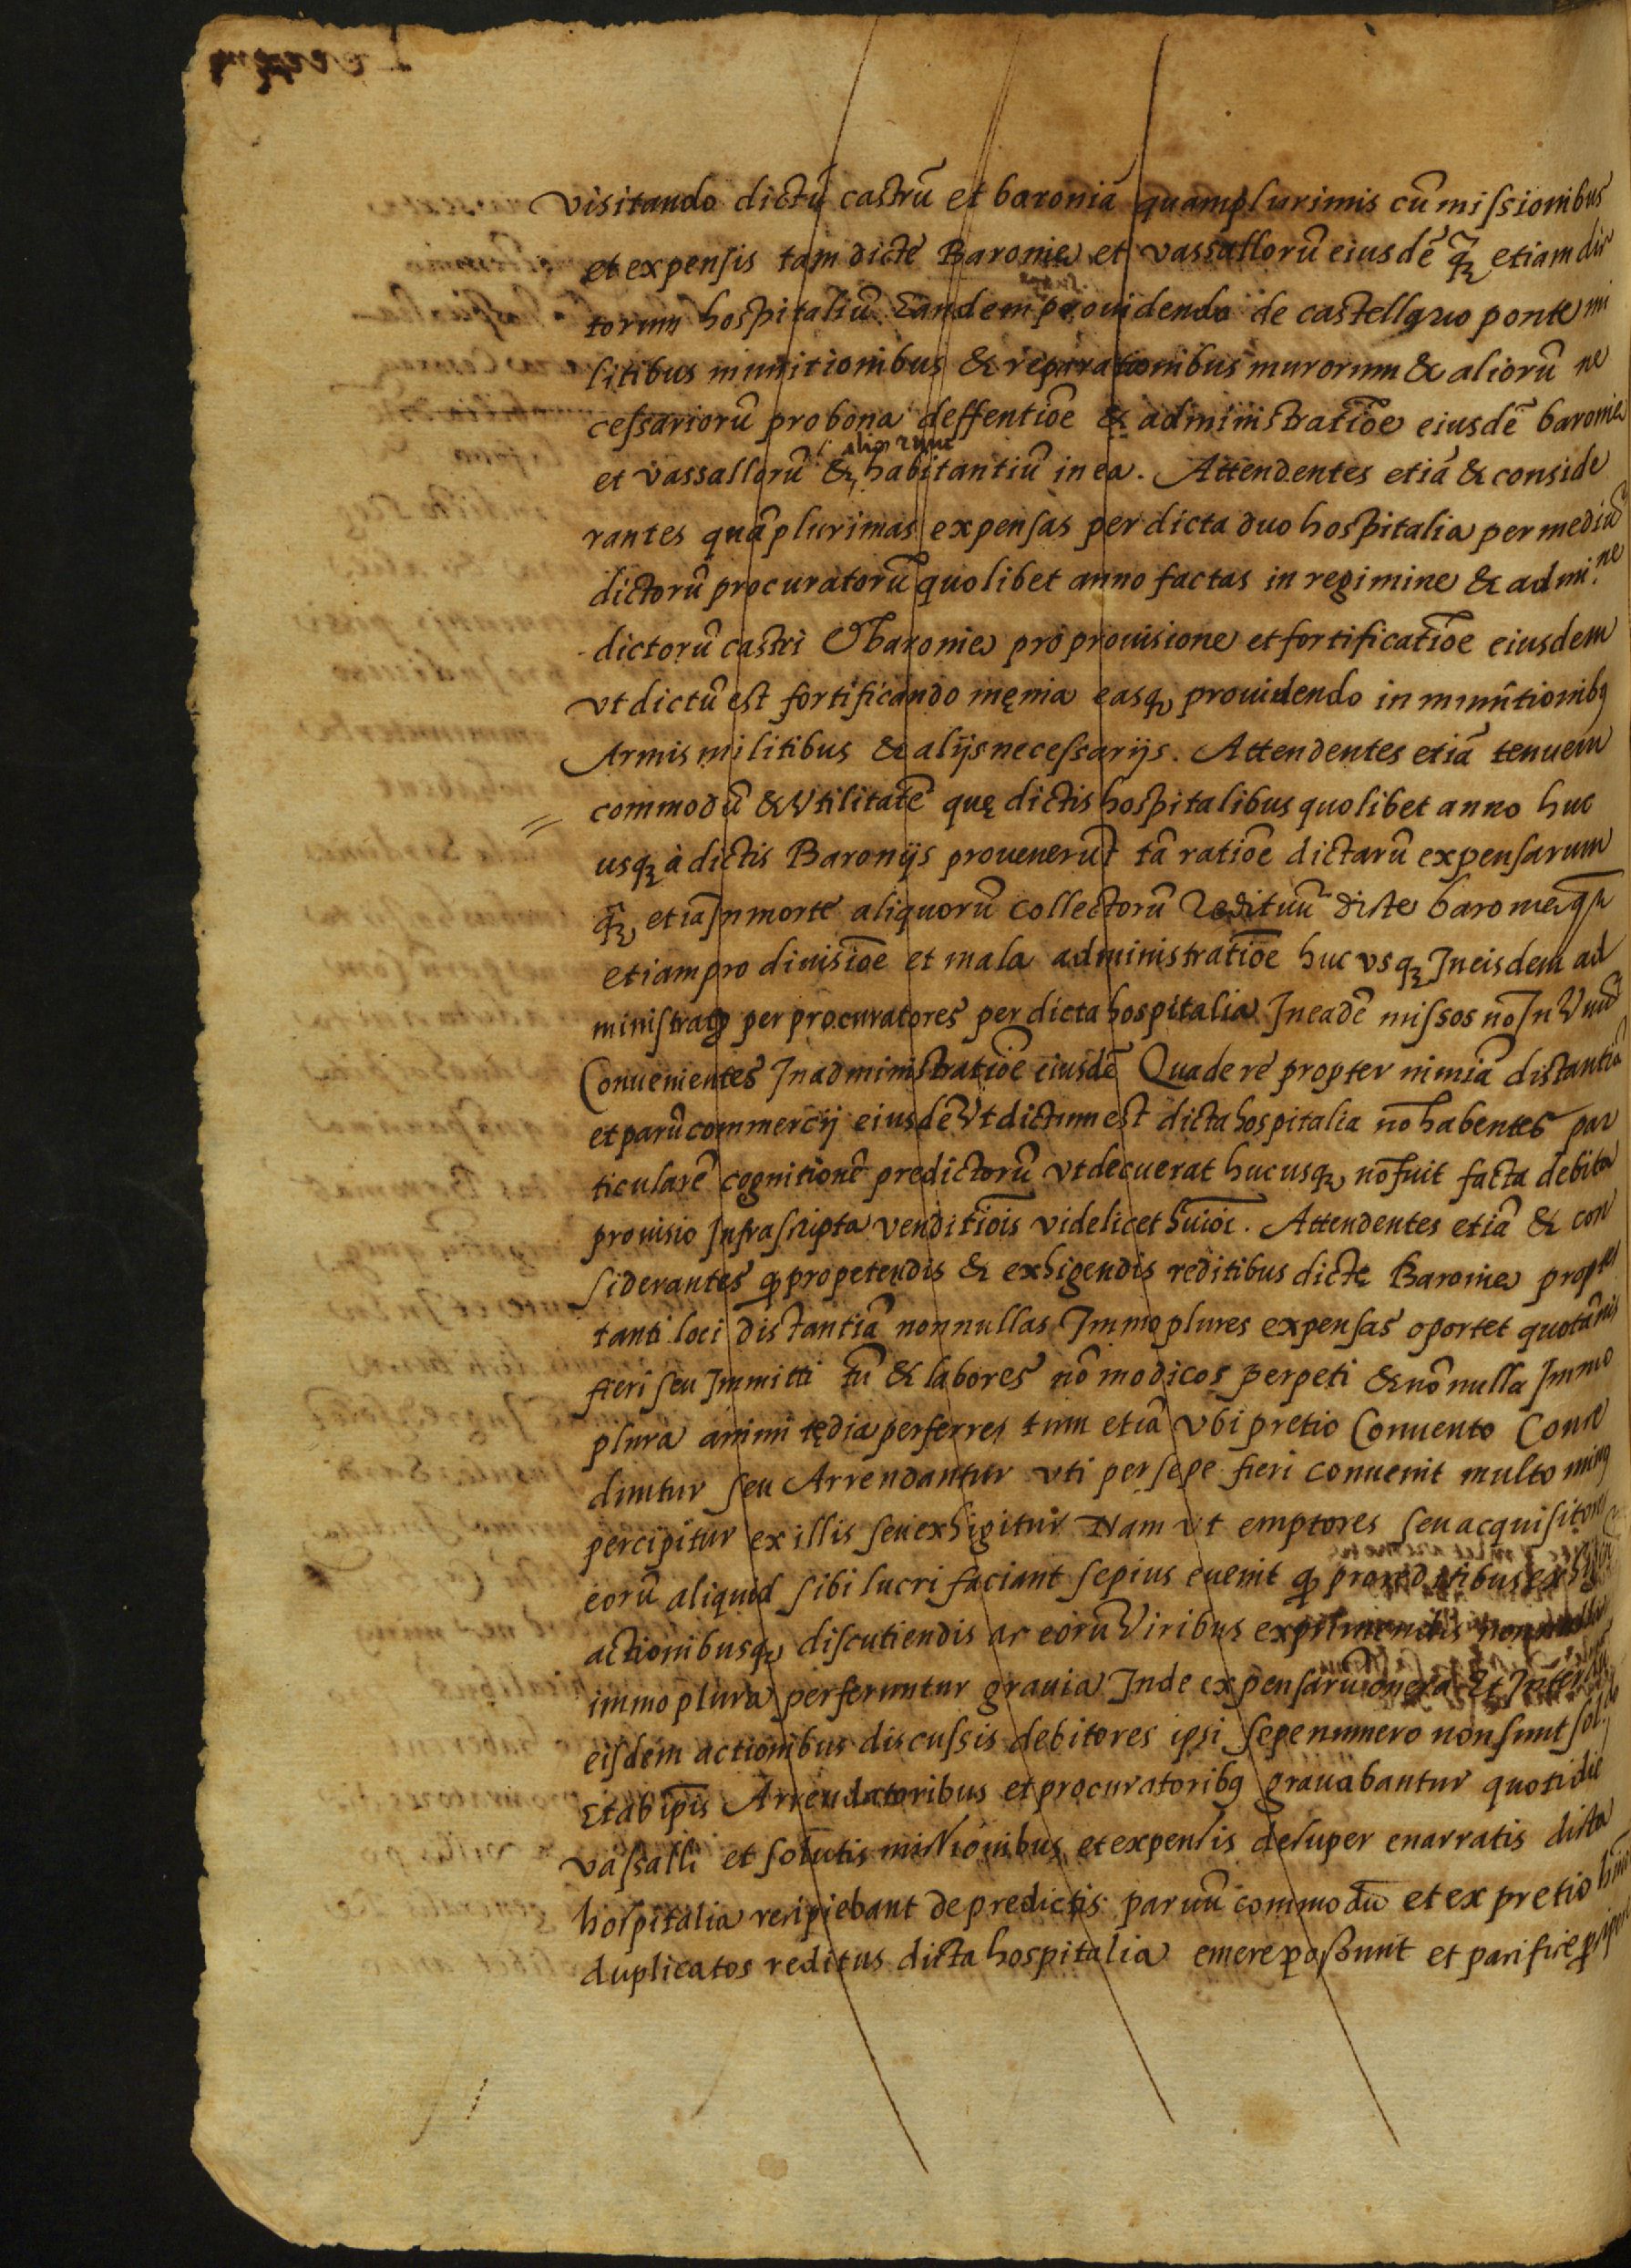 visitando dictũ castrũ et baroniã quamplurimis cũ missionibus
et expensis tam dicte Baronie et vassallorũ eiusdẽ q̃ʒ etiam dic
torum hospitaliũ. Eandem prouidendo de castellano ponte mi
litibus munitionibus & reparationibus murorum & aliorũ ne
cessariorũ pro bona deffentiõe & administratiõe eiusdẽ baronie
aliorum
et vassallorũ & habitantiũ in ea. Attendentes etiã & conside
rantes quãplurimas expensas per dicta duo hospitalia per mediũ
dictorũ procuratorũ quolibet anno factas in regimine & admi.ne
dictorũ castri & baronie pro prouisione et fortificatiõe eiusdem
vt dictũ est fortificando męnia easqʒ prouidendo in munitionibꝰ
Armis militibus & alijs necessarijs. Attendentes etiã tenuem
commodũ & vtilitatẽ quę dictis hospitalibus quolibet anno huc
usqʒ à dictis Baronijs prouenerũt tã ratiõe dictarũ expensarum
q̃ʒ etiã In morte aliquorũ collectorũ Redituũ dicte baronie
etiam pro diuisiõe et mala administratiõe huc vsqʒ In eisdem ad
ministrat per procuratores per dicta hospitalia In eadẽ missos nõ In Vnũ
Conuenientes In administratiõe eiusdẽ Qua de re propter nimiã distantiã
et parũ commercij eiusdẽ Vt dictum est dicta hospitalia nõ habentes par
ticularẽ cognitionẽ predictorũ vt decuerat huc usqʒ nõ fuit facta debita
prouisio Infrascripta venditiõis videlicet hũiõi. Attendentes etiã & con
siderantes ꝙ pro petendis & exhigendis reditibus dictę Baronie propter
tanti loci distantiã nonnullas Immo plures expensas oportet quotãnis
fieri seu Immitti tũ & labores nõ modicos perpeti & nõ nulla Immo
plura animi tędia perferre tum etiã vbi pretio Conuento Conce
duntur seu Arrendantur vti persepe fieri conuenit multo minꝰ
percipitur ex illis seu exhigitur Nam vt emptores seu acquisitores
eorũ aliquid sibi lucri faciant sepius euenit ꝙ pro reditibus
actionibusqʒ discutiendis ac eorũ Viribus exprimendis nonnulla
immo plura perferuntur grauia Inde expensarũ onera Et
eisdem actionibus discussis debitores ipsi sepenumero non sunt
Et ab ip̃is Arrendatoribus et procuratoribꝰ grauabantur quotidie
vassalli et solutis missionibus et expensis desuper enarratis dicta
hospitalia recipiebant de predictis paruũ commodũ et ex pretio
duplicatos reditus dicta hospitalia emere possunt et